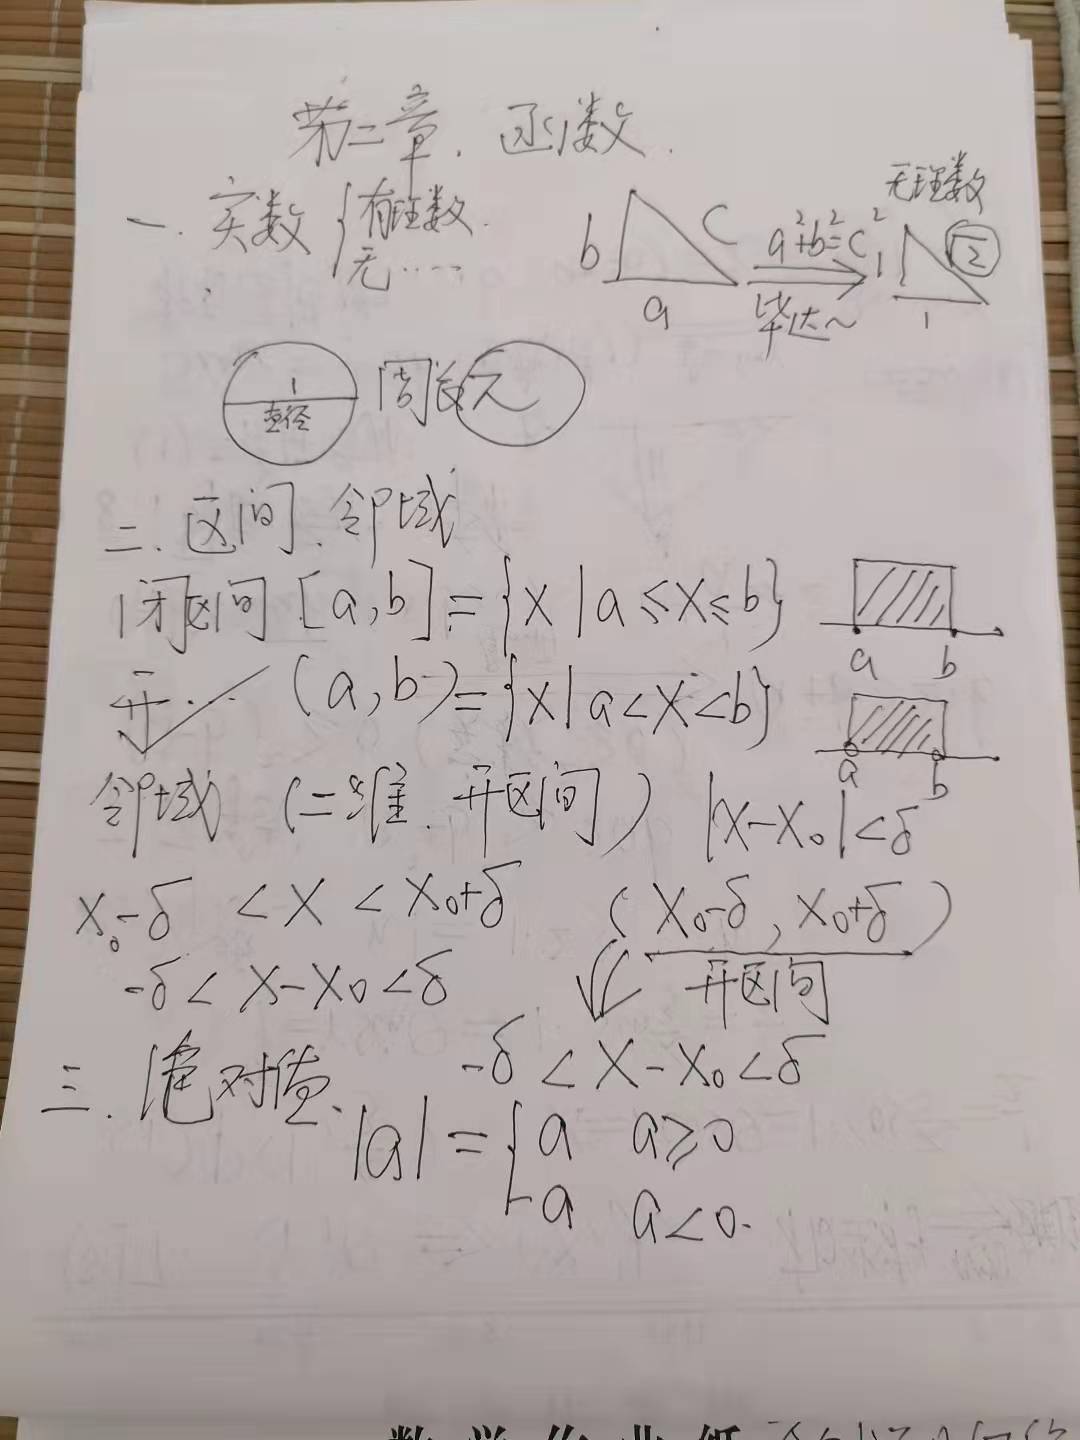 第二章. 函数.
一. 实数 { 有理数. 无……
b c a a²+b²=c² 毕达~ 无理数 1 √2 1
1 直径 周长 π
二. 区间. 邻域
1 闭区间 [a,b]={x|a≤x≤b} a b
开.. (a,b)={x|a<x<b} a b
邻域 (二维. 开区间) |x-x₀|<δ
x₀-δ <x< x₀+δ (x₀-δ, x₀+δ)
-δ< x-x₀<δ 开区间
-δ<x-x₀<δ
三. 绝对值.
|a|={ a a≥0
-a a<0.
数学作业纸